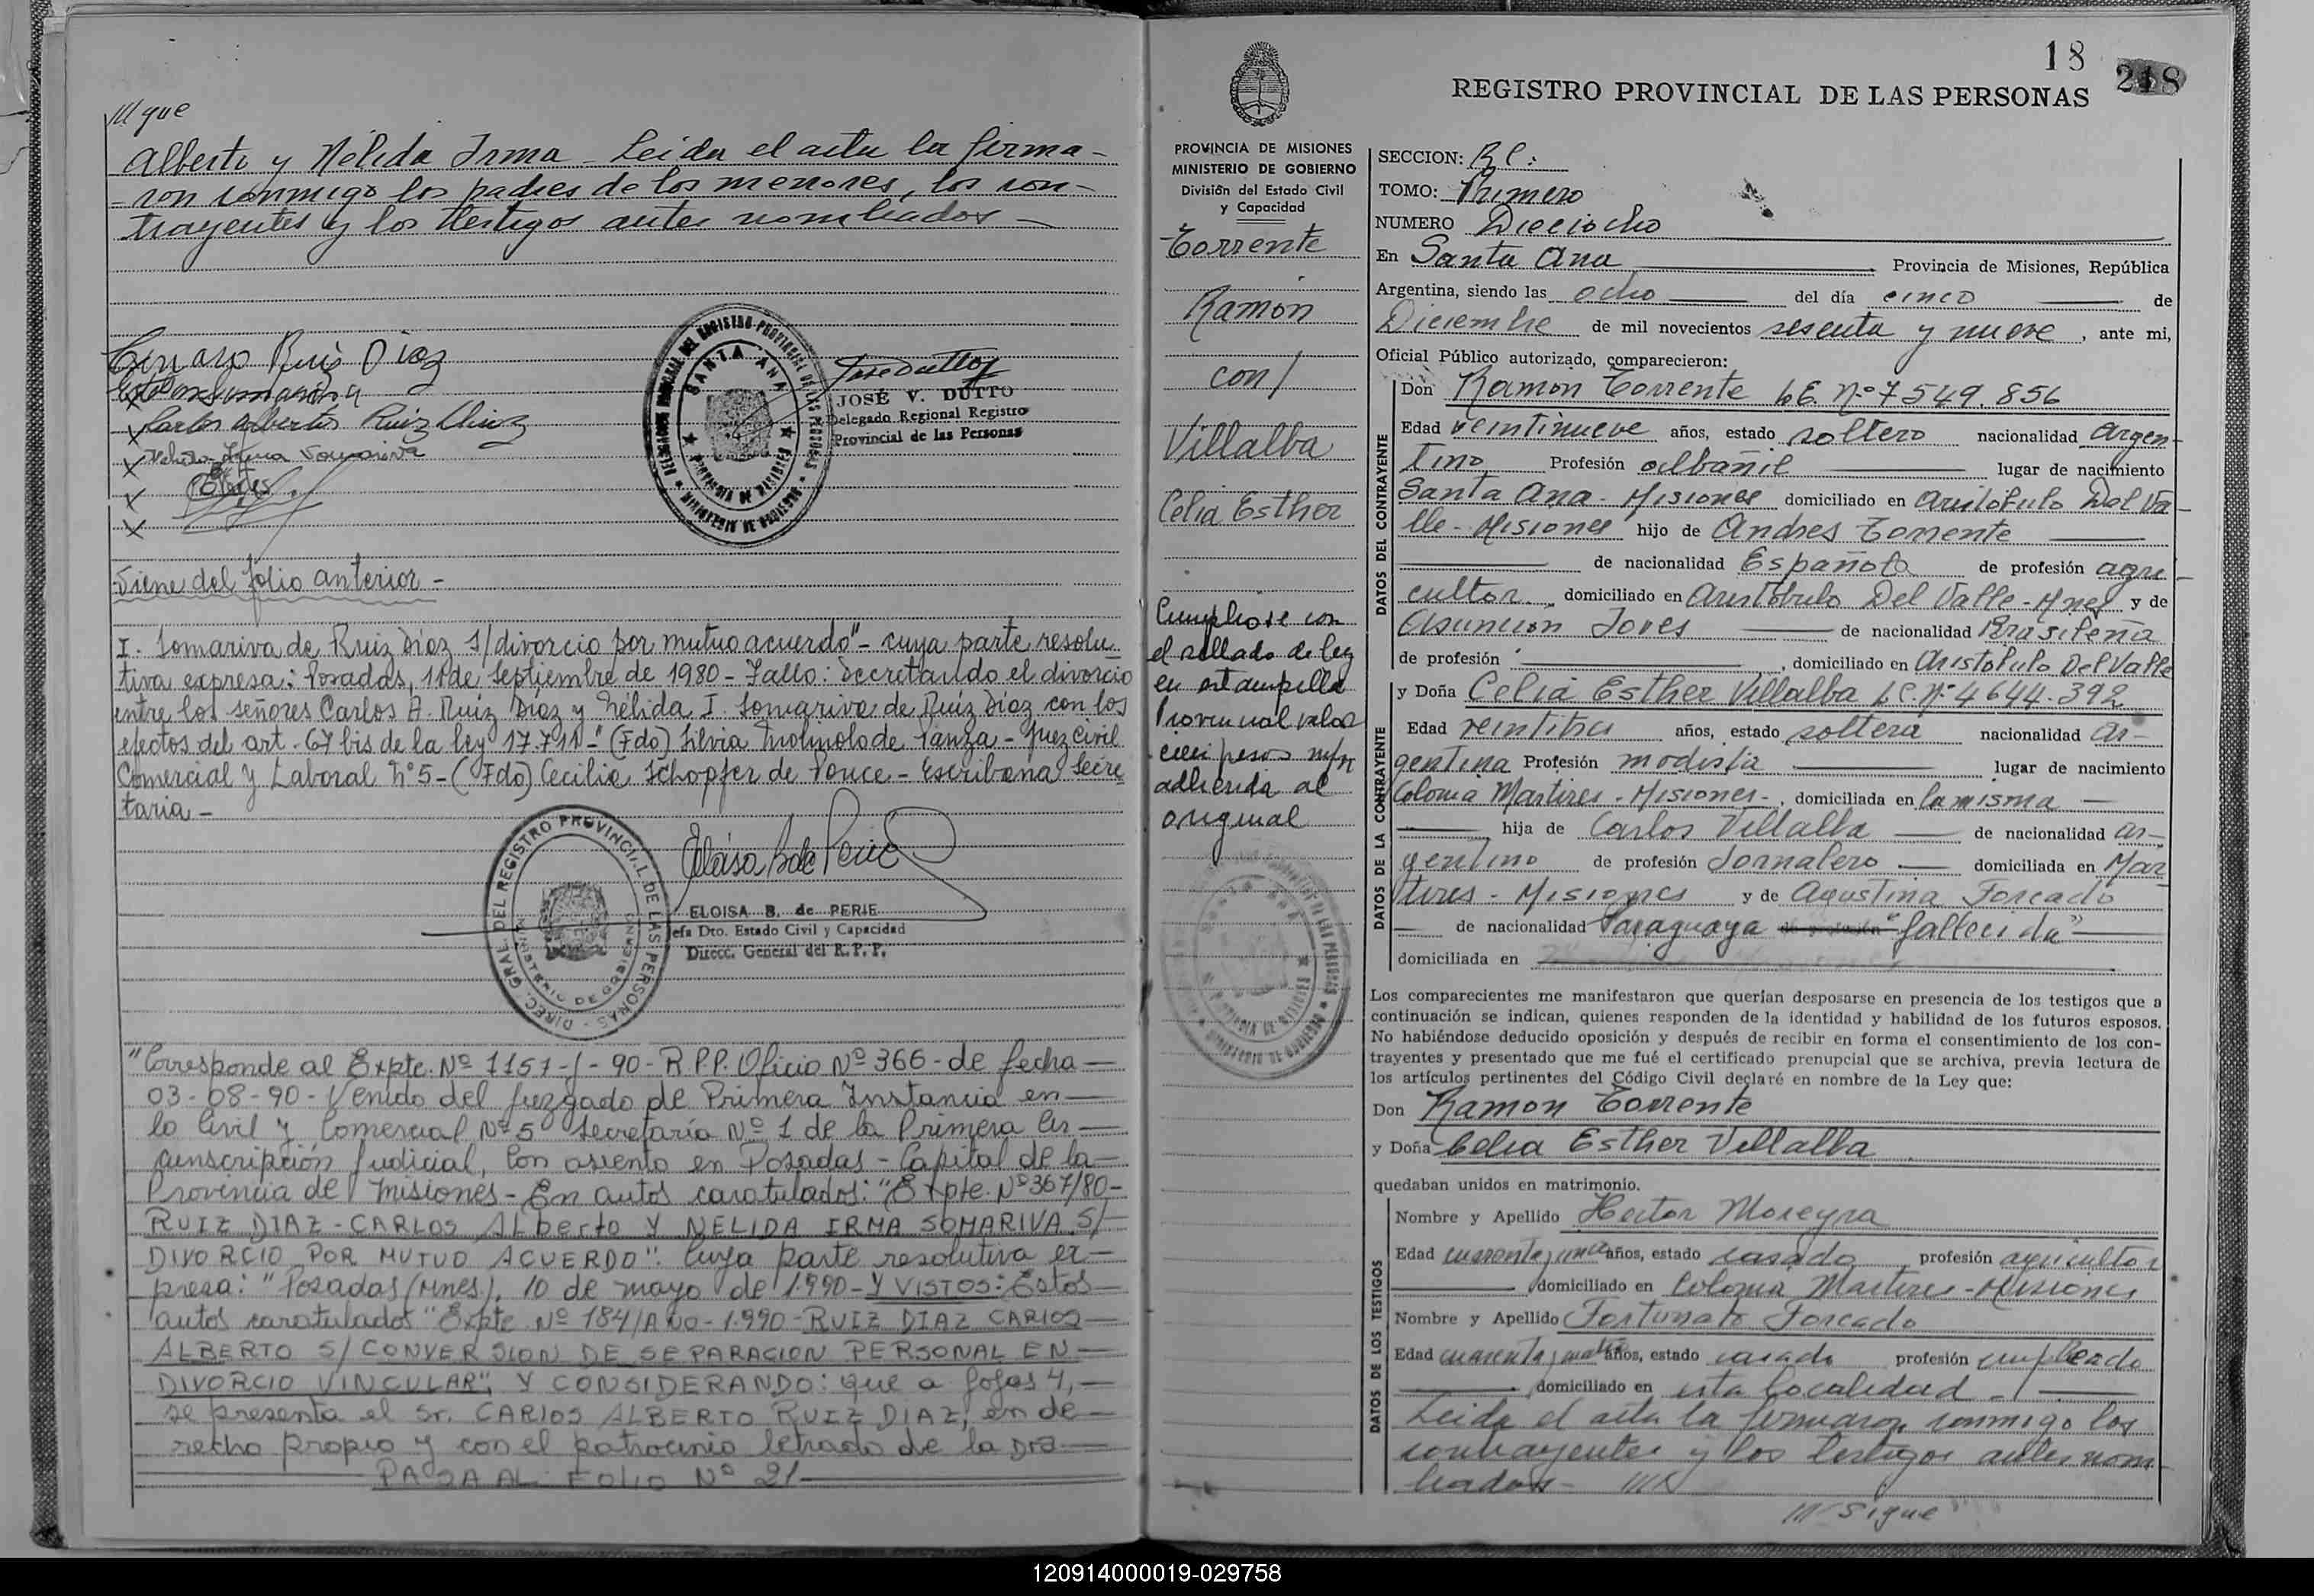 /// que
Alberto y Nélida Irma - Leida el acta la firma-
ron conmigo los padres de los menores, los con-
trayentes y los testigos antes nombrados -
Genaro Ruiz Diaz
Carlos Alberto Ruiz Diaz
Nelida Irma Somariva
DELEGACION REGIONAL DEL REGISTRO PROVINCIAL DE LAS PERSONAS
SANTA ANA
PROVINCIA DE MISIONES
MINISTERIO DE GOBIERNO
JOSÉ V. DUTTO
Delegado Regional Registro
Provincial de las Personas
Viene del folio anterior -
I. Somariva de Ruiz Díaz s/divorcio por mutuo acuerdo" - cuya parte resolu-
tiva expresa: Posadas, 11 de Septiembre de 1980 - Fallo: Decretando el divorcio
entre los señores Carlos A. Ruíz Díaz y Nélida I. Somariva de Ruíz Díaz con los
efectos del art. 67 bis de la ley 17.711 -" (Fdo) Silvia de - Juez Civil
Comercial y Laboral N° 5 - (Fdo) Cecilia Schopfer de Ponce - Escribana Secre
taria -
DIREC. GRAL. DEL REGISTRO PROVINCIAL DE LAS PERSONAS
MINISTERIO DE GOBIERNO
ELOISA B. de PERIE
Jefa Dto. Estado Civil y Capacidad
Direcc. General del R. P. P.
"Corresponde al Expte. Nº 1151-J-90-R.P.P. Oficio Nº 366-de fecha
03-08-90-Venido del Juzgado de Primera Instancia en
lo Civil y Comercial Nº 5 Secretaría Nº 1 de la Primera Cir-
cunscripción Judicial, Con asiento en Posadas - Capital de la
Provincia de Misiones - En autos caratulados: "Expte. Nº 367/80-
RUIZ DIAZ-CARLOS ALberto Y NELIDA IRMA SOMARIVA S/
DIVORCIO POR MUTUO ACUERDO". Cuya parte resolutiva ex-
presa: "Posadas (Mnes), 10 de mayo de 1.990-Y VISTOS: Estos
autos caratulados "Expte. Nº 184/Año-1.990-RUIZ DIAZ CARLOS
ALBERTO S/ CONVERSION DE SEPARACION PERSONAL EN
DIVORCIO VINCULAR"; Y CONSIDERANDO: que a fojas 4,
se presenta el Sr. CARLOS ALBERTO RUIZ DIAZ, en de-
recho propio y con el patrocinio letrado de la Dra
PASA AL FOLIO Nº 21
18
218
REGISTRO PROVINCIAL DE LAS PERSONAS
PROVINCIA DE MISIONES
MINISTERIO DE GOBIERNO
División del Estado Civil
y Capacidad
Torrente
Ramón
con/
Villalba
Celia Esther
Cumpliose con
el sellado de ley
en estampilla
Provincial valor
cien pesos m/n
adherida al
original
SECCION: R C.
TOMO: Primero
NUMERO Dieciocho
En Santa Ana Provincia de Misiones, República
Argentina, siendo las ocho del día cinco de
Diciembre de mil novecientos sesenta y nueve, ante mi,
Oficial Público autorizado, comparecieron:
DATOS DEL CONTRAYENTE
Don Ramon Torrente L.E. Nº 7549.856
Edad veintinueve años, estado soltero nacionalidad argen-
tino Profesión albañil lugar de nacimiento
Santa Ana - Misiones domiciliado en Aristobulo Del Va-
lle - Misiones hijo de Andres Torrente
de nacionalidad Española de profesión agri-
cultor, domiciliado en Aristobulo Del Valle - Mnes y de
Asuncion Joves de nacionalidad Brasileña
de profesión , domiciliado en Aristobulo Del Valle
DATOS DE LA CONTRAYENTE
y Doña Celia Esther Villalba L.C. Nº 4644.392
Edad veintitres años, estado soltera nacionalidad ar-
gentina Profesión modista lugar de nacimiento
Colonia Martires - Misiones -, domiciliada en la misma
hija de Carlos Villalba de nacionalidad ar-
gentino de profesión Jornalero domiciliada en Mar
tires - Misiones y de Agustina Forcado
de nacionalidad Paraguaya de profesión "fallecida"
domiciliada en
Los comparecientes me manifestaron que querían desposarse en presencia de los testigos que a
continuación se indican, quienes responden de la identidad y habilidad de los futuros esposos.
No habiéndose deducido oposición y después de recibir en forma el consentimiento de los con-
trayentes y presentado que me fué el certificado prenupcial que se archiva, previa lectura de
los artículos pertinentes del Código Civil declaré en nombre de la Ley que:
Don Ramon Torrente
y Doña Celia Esther Villalba
quedaban unidos en matrimonio.
DATOS DE LOS TESTIGOS
Nombre y Apellido Hector Moreyra
Edad cuarenta y una años, estado casado profesión agricultor
domiciliado en Colonia Martires - Misiones
Nombre y Apellido Fortunato Forcado
Edad cuarenta y años, estado casado profesión empleado
domiciliado en esta localidad -
Leida el acta la firmaron conmigo los
contrayentes y los testigos antes nom-
brados -
/// Sigue
120914000019-029758